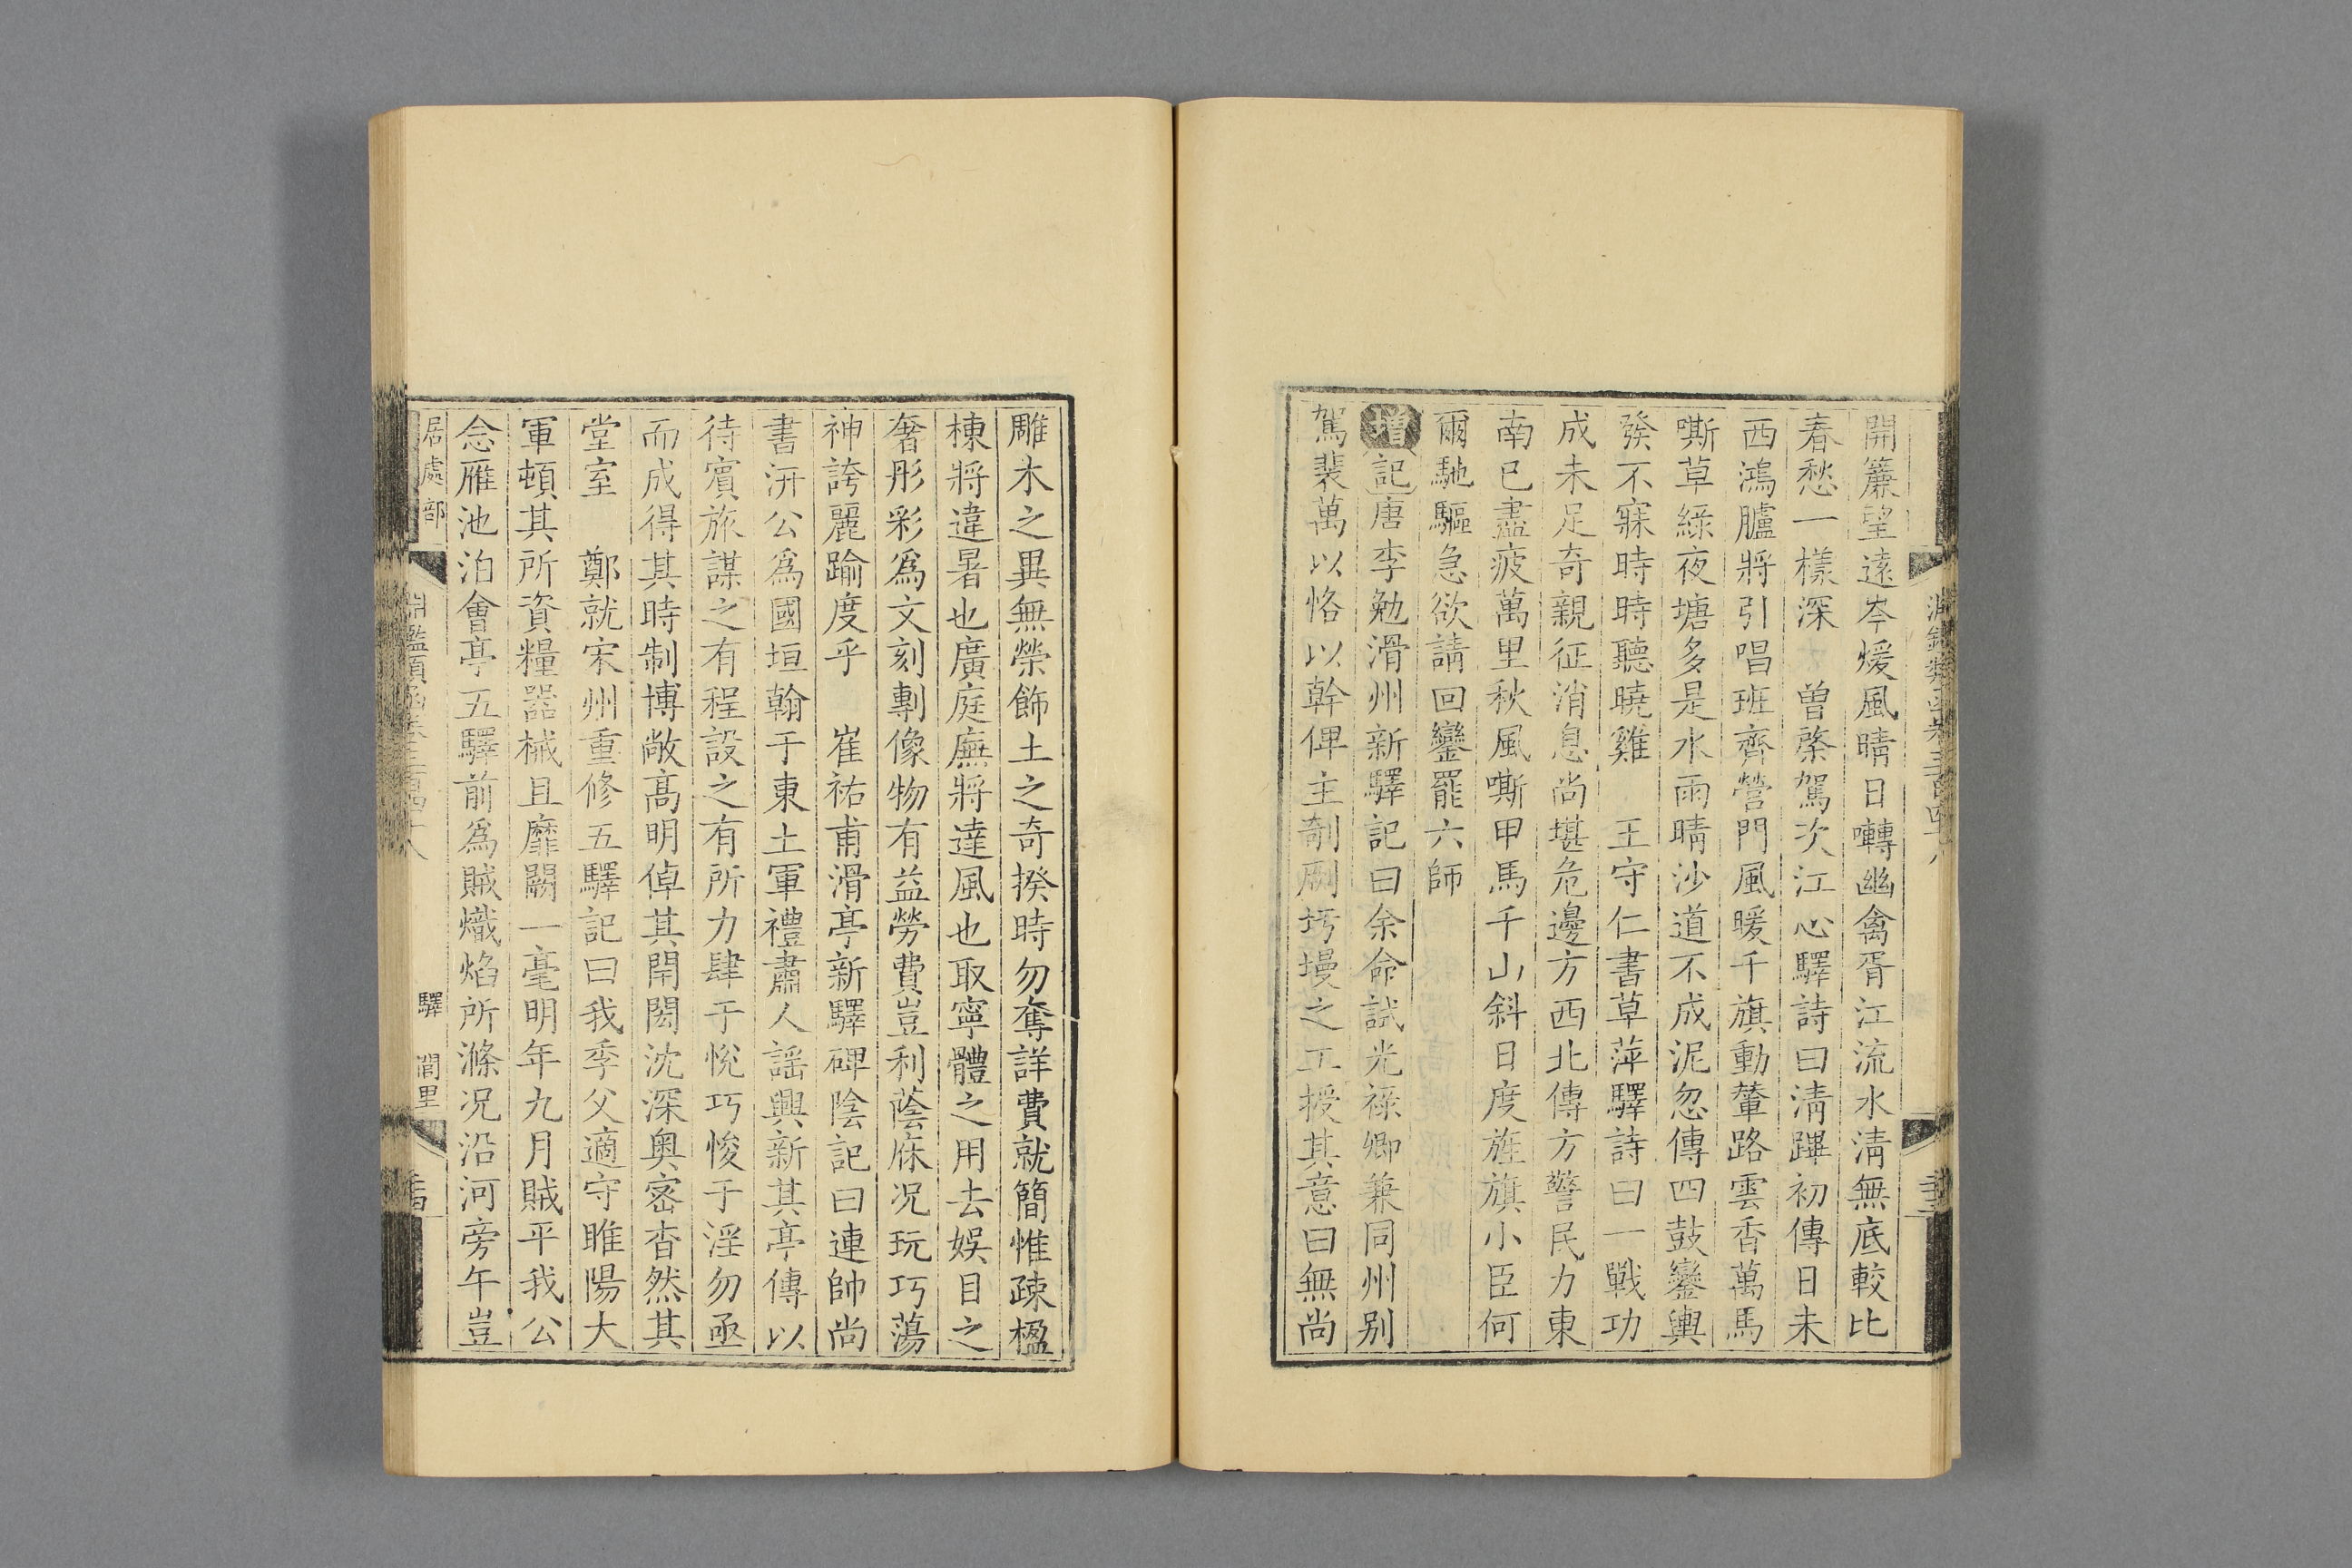 開簾望遠岑煖風晴日囀幽禽胥江流水淸無底較比
春愁一樣深　曾棨駕次江心驛詩曰淸蹕初傳日未
西鴻臚將引唱班齊營門風暖千旗動輦路雲香萬馬
嘶草綠夜塘多是水雨晴沙道不成泥忽傳四鼓鑾輿
發不寐時時聽曉雞　王守仁書草萍驛詩曰一戰功
成未足奇親征消息尚堪危邊方西北傳方警民力東
南已盡疲萬里秋風嘶甲馬千山斜日度旌旗小臣何
爾馳驅急欲請回鑾罷六師
增記唐李勉滑州新驛記曰余命試光祿卿兼同州别
駕裴萬以恪以幹俾主剞劂圬墁之工授其意曰無尚
雕木之異無榮飾土之奇揆時勿奪詳費就簡惟疎楹
棟將違暑也廣庭廡將達風也取寧體之用去娱目之
奢彤彩爲文刻剸像物有益勞費豈利蔭庥况玩巧蕩
神誇麗踰度乎　崔祐甫滑亭新驛碑陰記曰連帥尚
書汧公爲國垣翰于東土軍禮肅人謡興新其亭傳以
待賓旅謀之有程設之有所力肆于悅巧悛于淫勿亟
而成得其時制博敞高明倬其閈閎沈深奧密杳然其
堂室　鄭就宋州重修五驛記曰我季父適守睢陽大
軍頓其所資糧器械且靡闕一毫明年九月賊平我公
念雁池泊會亭五驛前爲賊熾焰所滌况沿河旁午豈
居處部
淵鑑類函卷三百四十八
驛　閭里